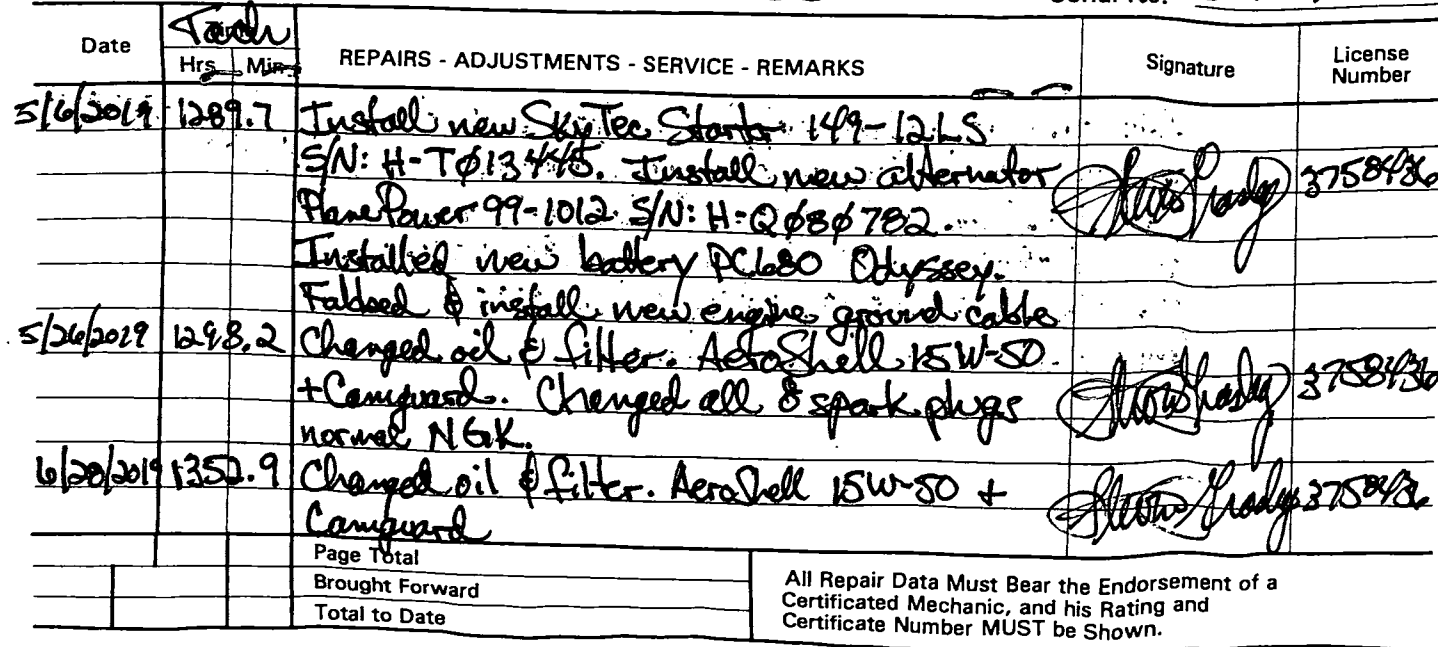 Serial No.
Date Tach REPAIRS - ADJUSTMENTS - SERVICE - REMARKS Signature License Number
Hrs Min
5/6/2019 1289.7 Install new SkyTec Starter 149-12LS
S/N: H-TØ13445. Install new alternator 3758436
Plane Power 99-1012 S/N: H-QØ8Ø782.
Installed new battery PC680 Odyssey.
& install new engine ground cable
5/26/2019 1298.2 Changed oil & filter. AeroShell 15W-50
+Camguard. Changed all 8 spark plugs 3758436
normal NGK.
6/28/2019 1352.9 Changed oil & filter. AeroShell 15W-50 + 3758436
Camguard
Page Total
Brought Forward
Total to Date
All Repair Data Must Bear the Endorsement of a
Certificated Mechanic, and his Rating and
Certificate Number MUST be Shown.